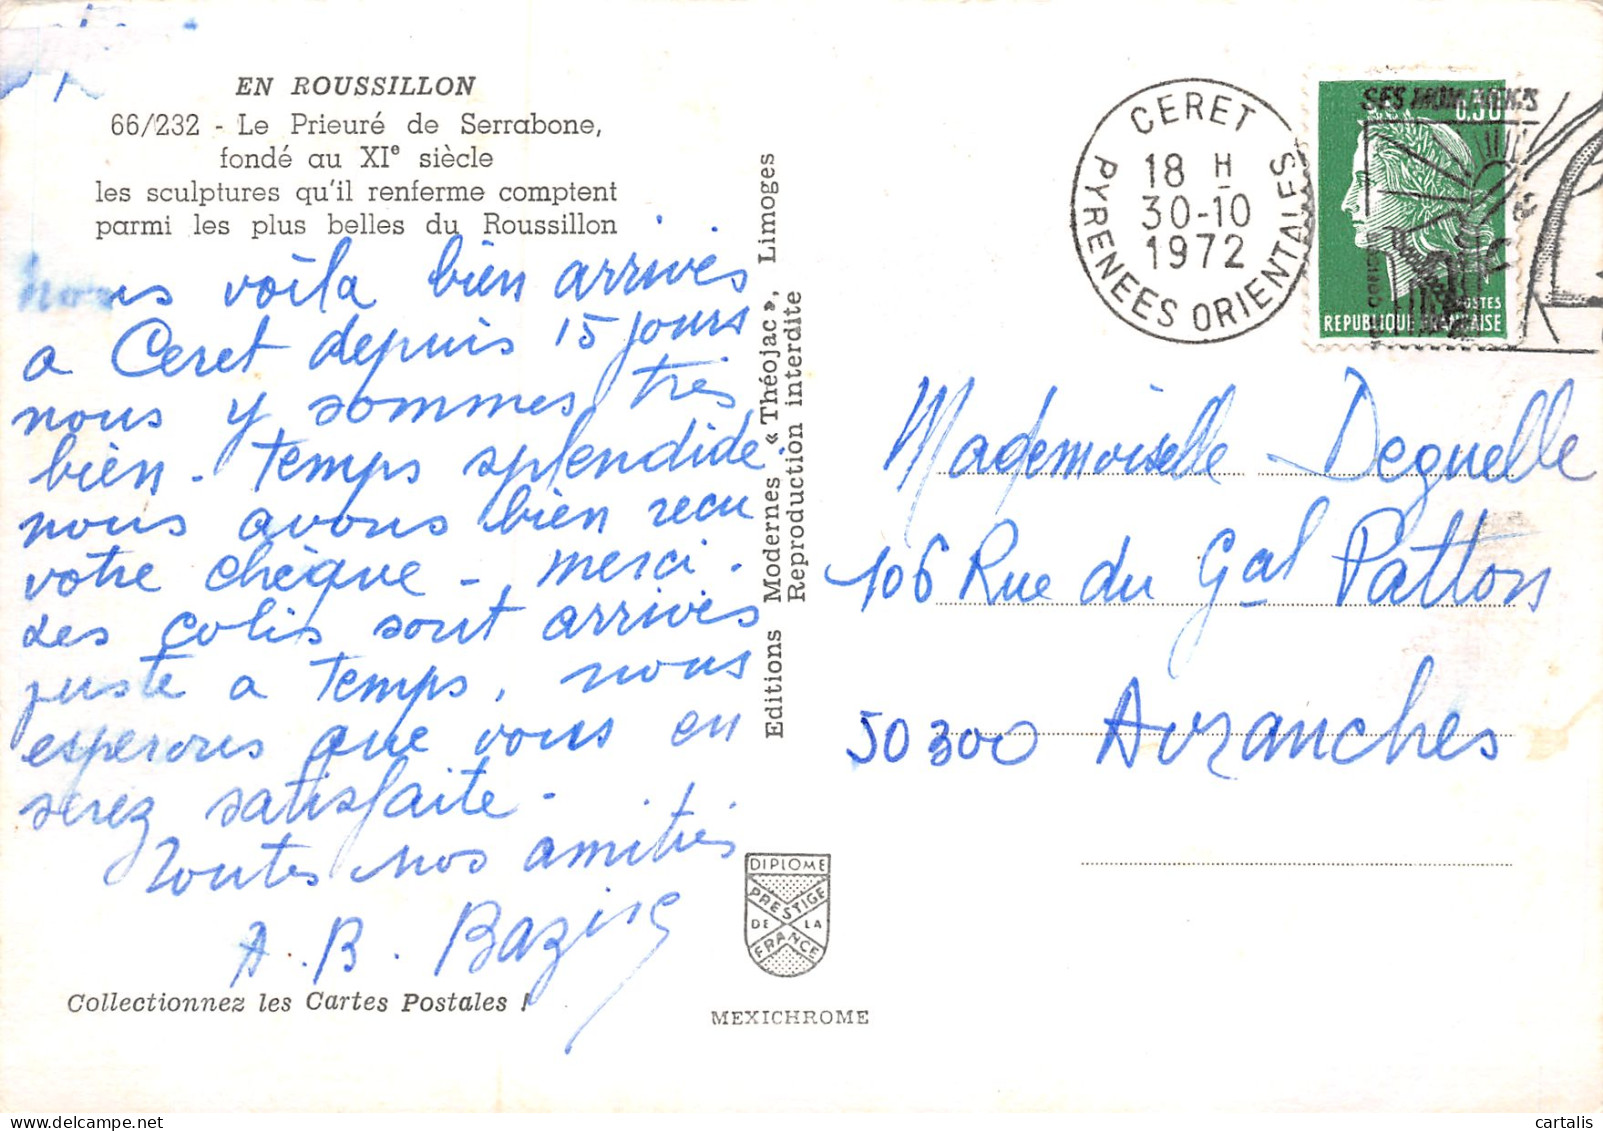 EN ROUSSILLON
66/232 - Le Prieuré de Serrabone,
fondé au XIe siècle
les sculptures qu'il renferme comptent
parmi les plus belles du Roussillon
nous voila bien arrivés
a Ceret depuis 15 jours
nous y sommes très
bien - Temps splendide
nous avons bien recu
votre chèque - merci.
Les colis sont arrivés
juste a Temps, nous
esperons que vous en
serez satisfaite -
Toutes nos amitiés
A. B. Bazire
Collectionnez les Cartes Postales !
Editions Modernes « Théojac », Limoges
Reproduction interdite
DIPLOME
PRESTIGE
DE LA
FRANCE
MEXICHROME
CERET
18 H
30-10
1972
PYRENEES ORIENTALES
SES MONUMENTS
0,30
POSTES
REPUBLIQUE FRANÇAISE
Mademoiselle Deguelle
106 Rue du Gal Patton
50300 Avranches
cartalis